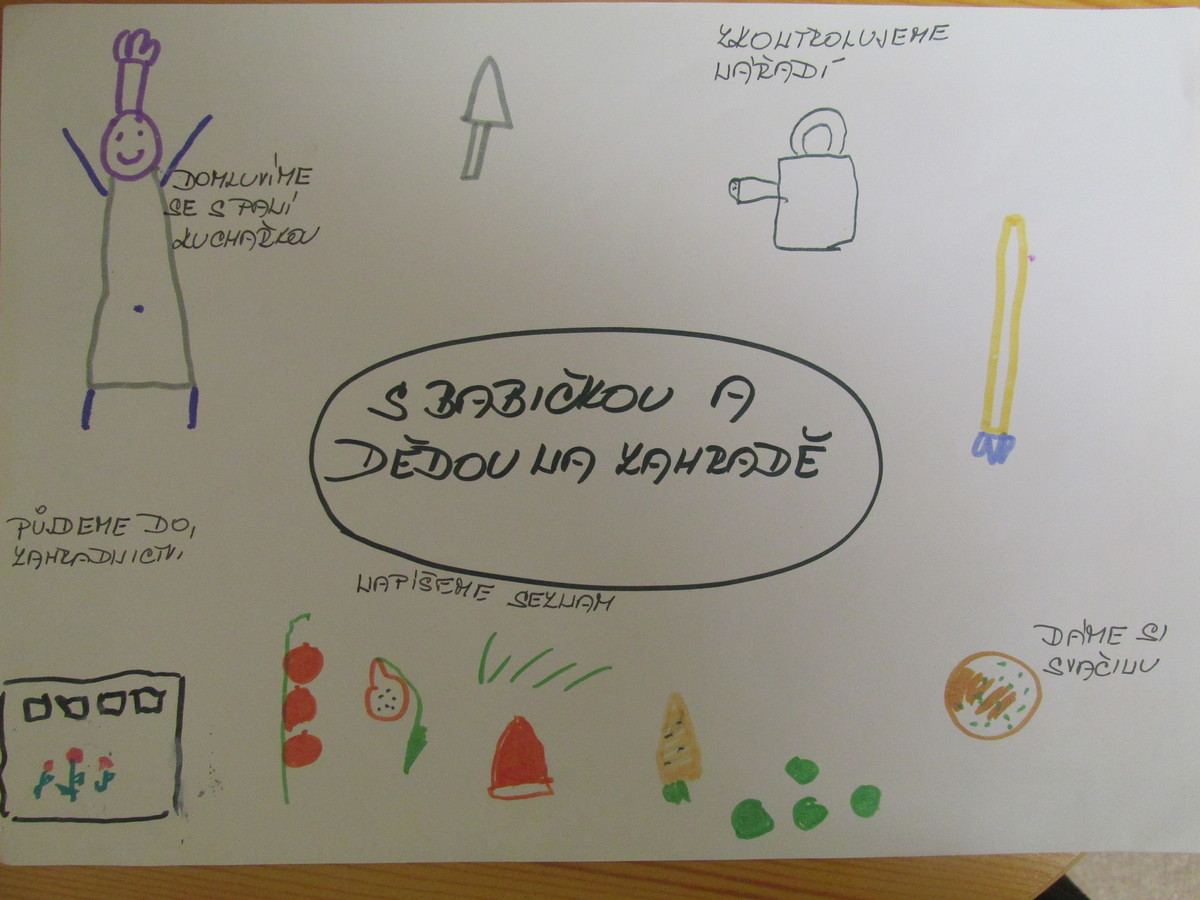 ZKONTROLUJEME
NÁŘADÍ
DOMLUVÍME
SE S PANÍ
KUCHAŘKOU
S BABIČKOU A
DĚDOU NA ZAHRADĚ
PŮJDEME DO,
ZAHRADNICTVÍ
NAPÍŠEME SEZNAM
DÁME SI
SVAČINU